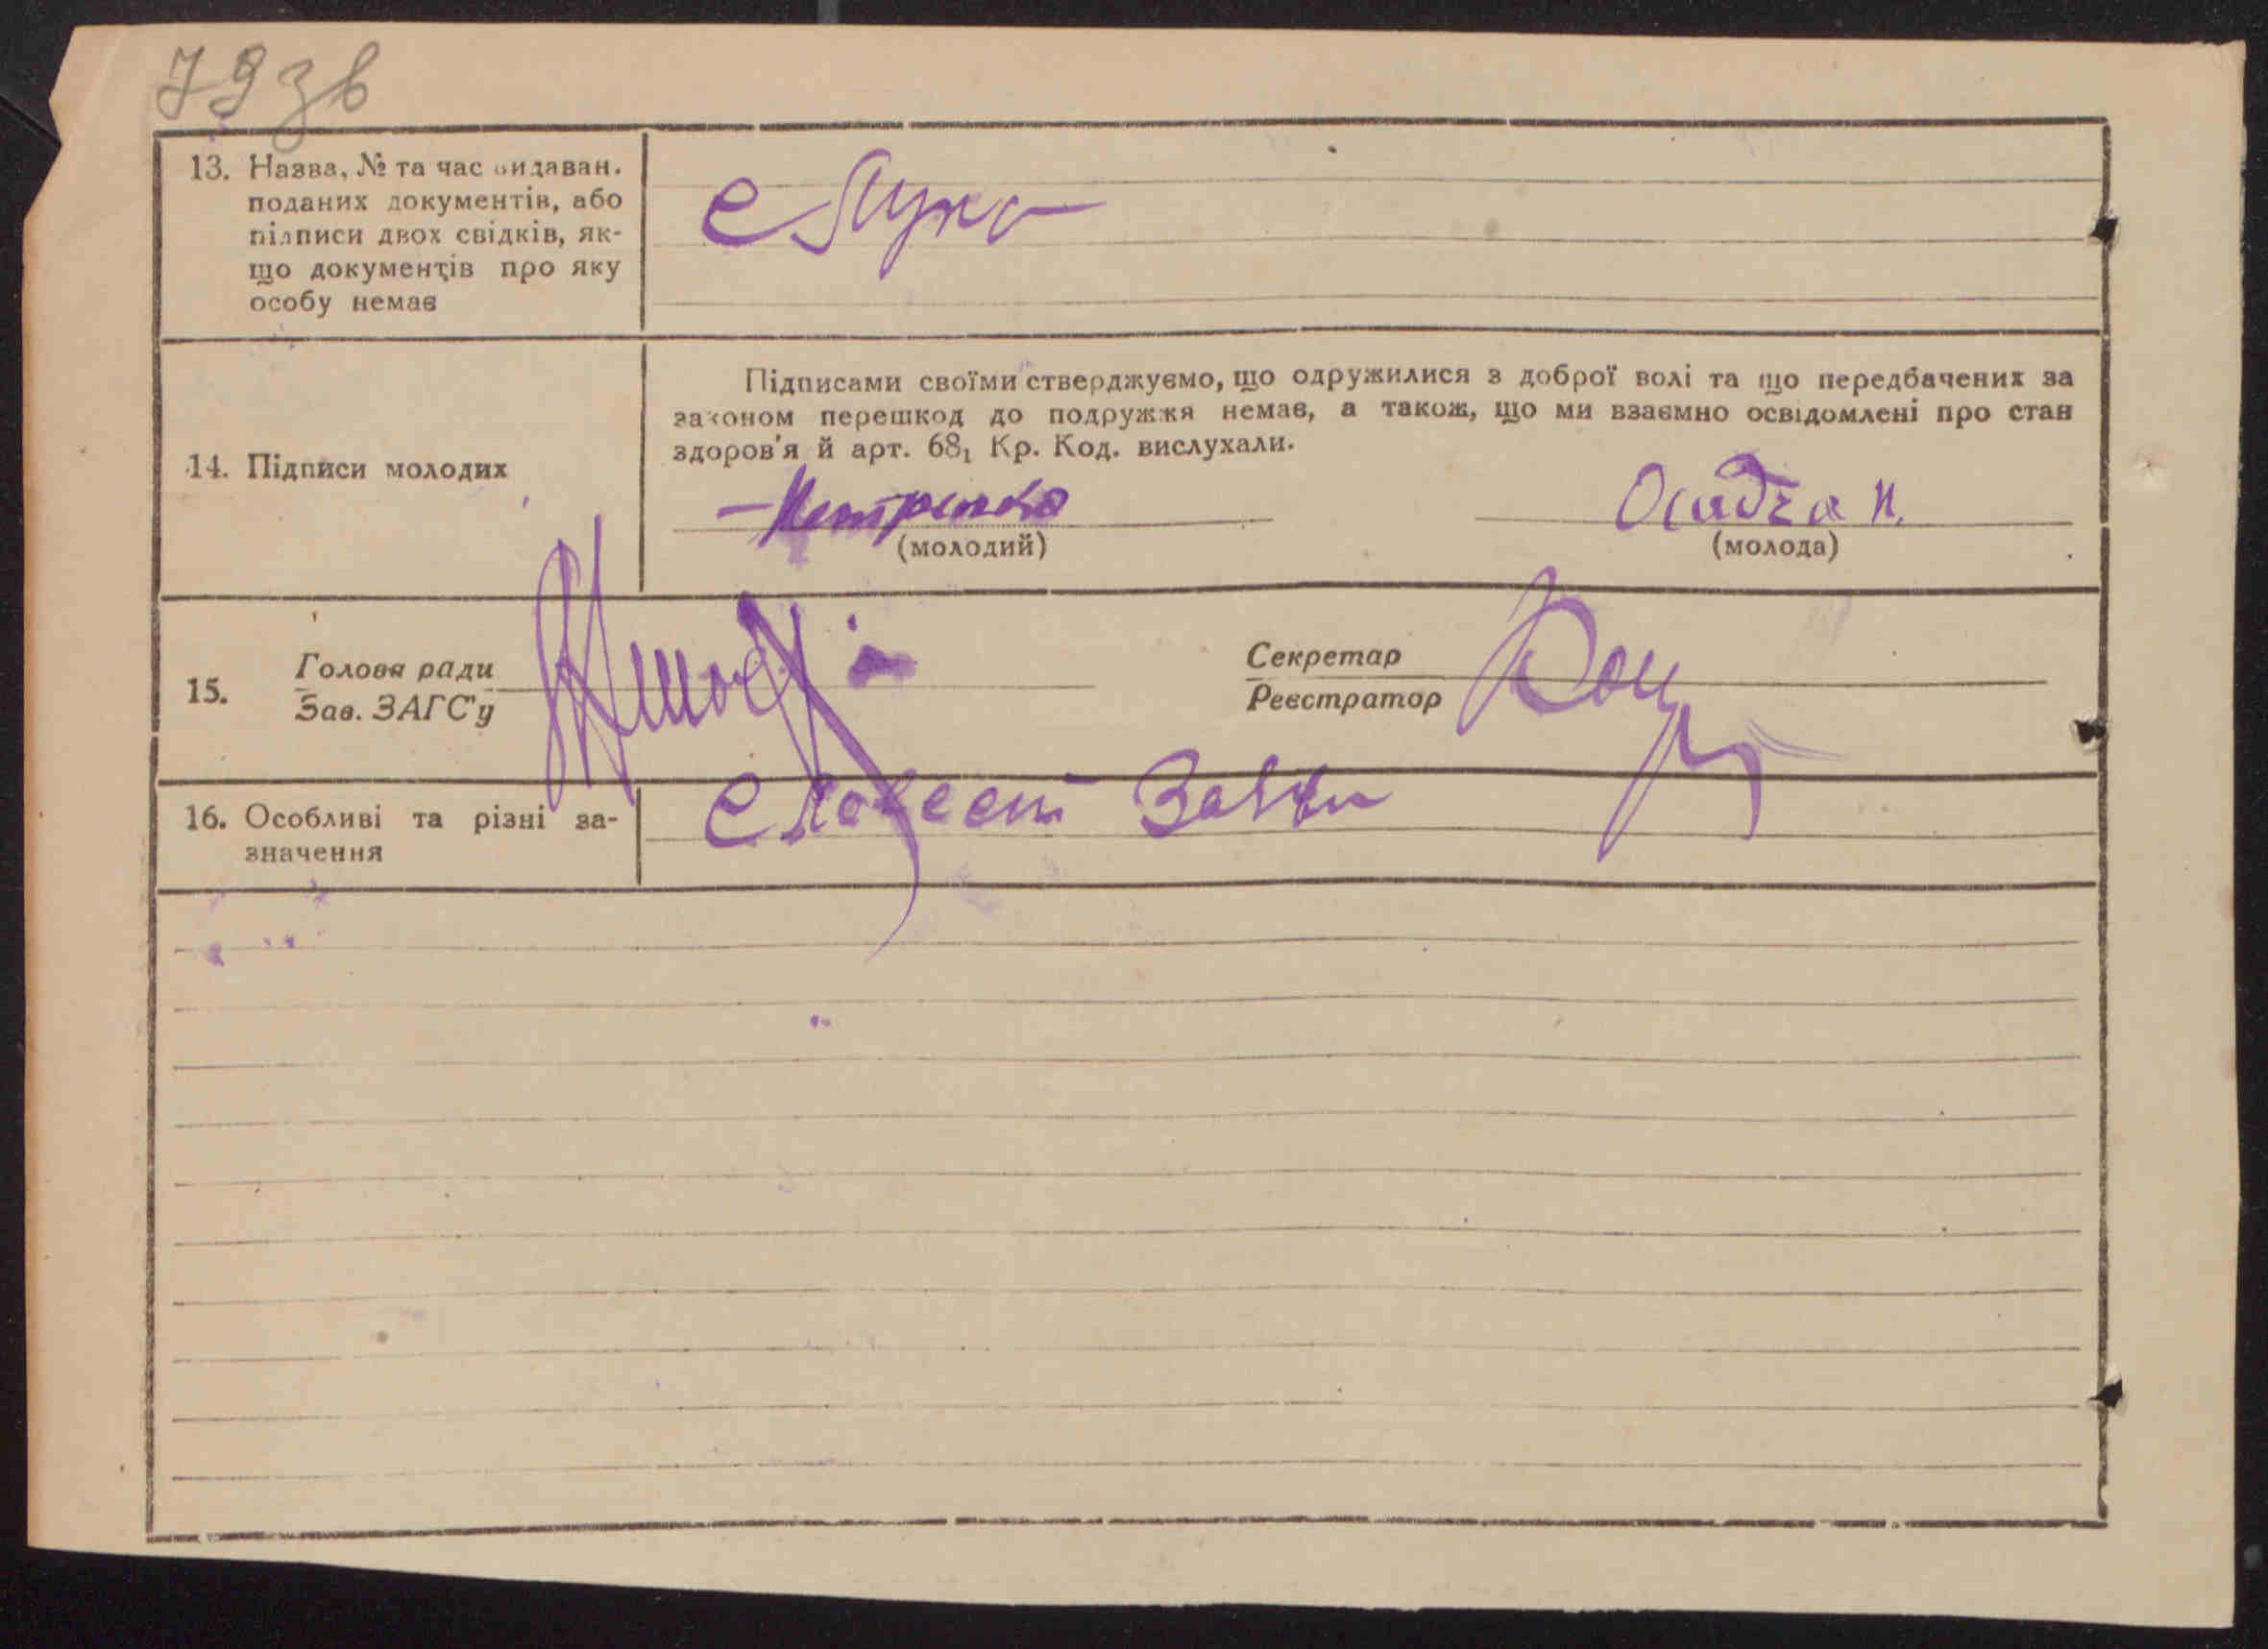 79 зв
13. Назва, № та час видаван.
поданих документів, або
підписи двох свідків, як-
що документів про яку
особу немає
14. Підписи молодих
Підписами своїми стверджуємо, що одружилися з доброї волі та що передбачених за
законом перешкод до подружжя немає, а також, що ми взаємно освідомлені про стан
здоров'я й арт. 68₁ Кр. Код. вислухали.
Осадча
(молодий)
(молода)
15.
Голова ради
Зав. ЗАГС'у
Секретар
Реєстратор
16. Особливі та різні за-
значення